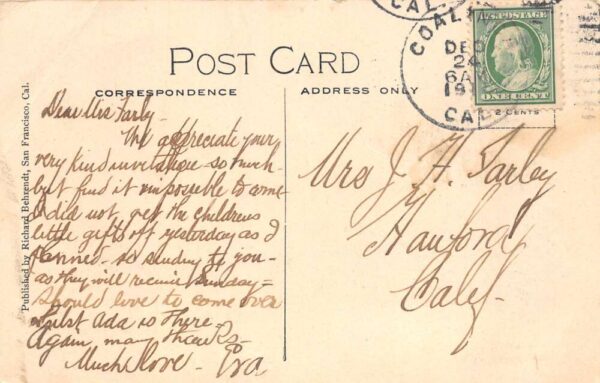 CAL.
COAL
DEC
24
6 A
191
CAL
U.S. POSTAGE
ONE CENT
POST CARD
CORRESPONDENCE
ADDRESS ONLY
2 CENTS
Published by Richard Behrendt, San Francisco, Cal.
Dear Mrs Farley -
We appreciate your
very kind invitation so much -
but find it impossible to come
I did not get the childrens
little gifts off yesterday as I
planned - so sending to you -
as they will receive Sunday -
Should love to come over
whilst Ada is there -
Again, many thanks
Much love - Eva
Mrs J. H. Farley
Hanford
Calif -